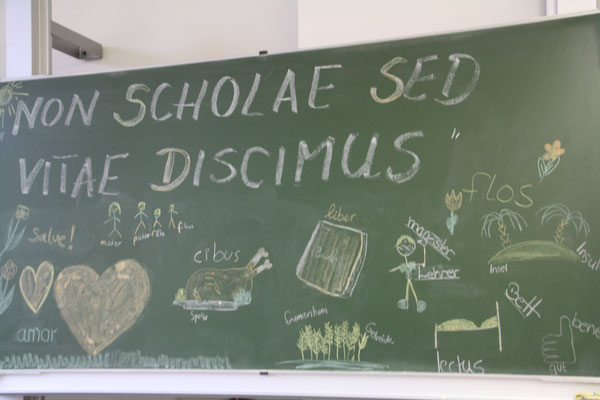 NON SCHOLAE SED
VITAE DISCIMUS"
flos
Salve!
mater pater filia filius
liber
magister
Lehrer
cibus
Speise
Insel
Insul
Bett
amor
frumentum
Getreide
lectus
bene
gut